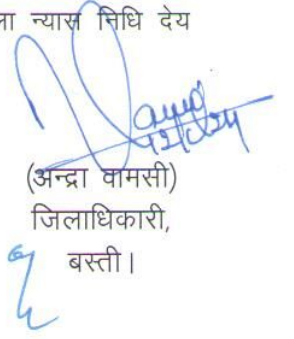 ला न्यास निधि देय
(अन्द्रा वामसी)
जिलाधिकारी,
बस्ती।